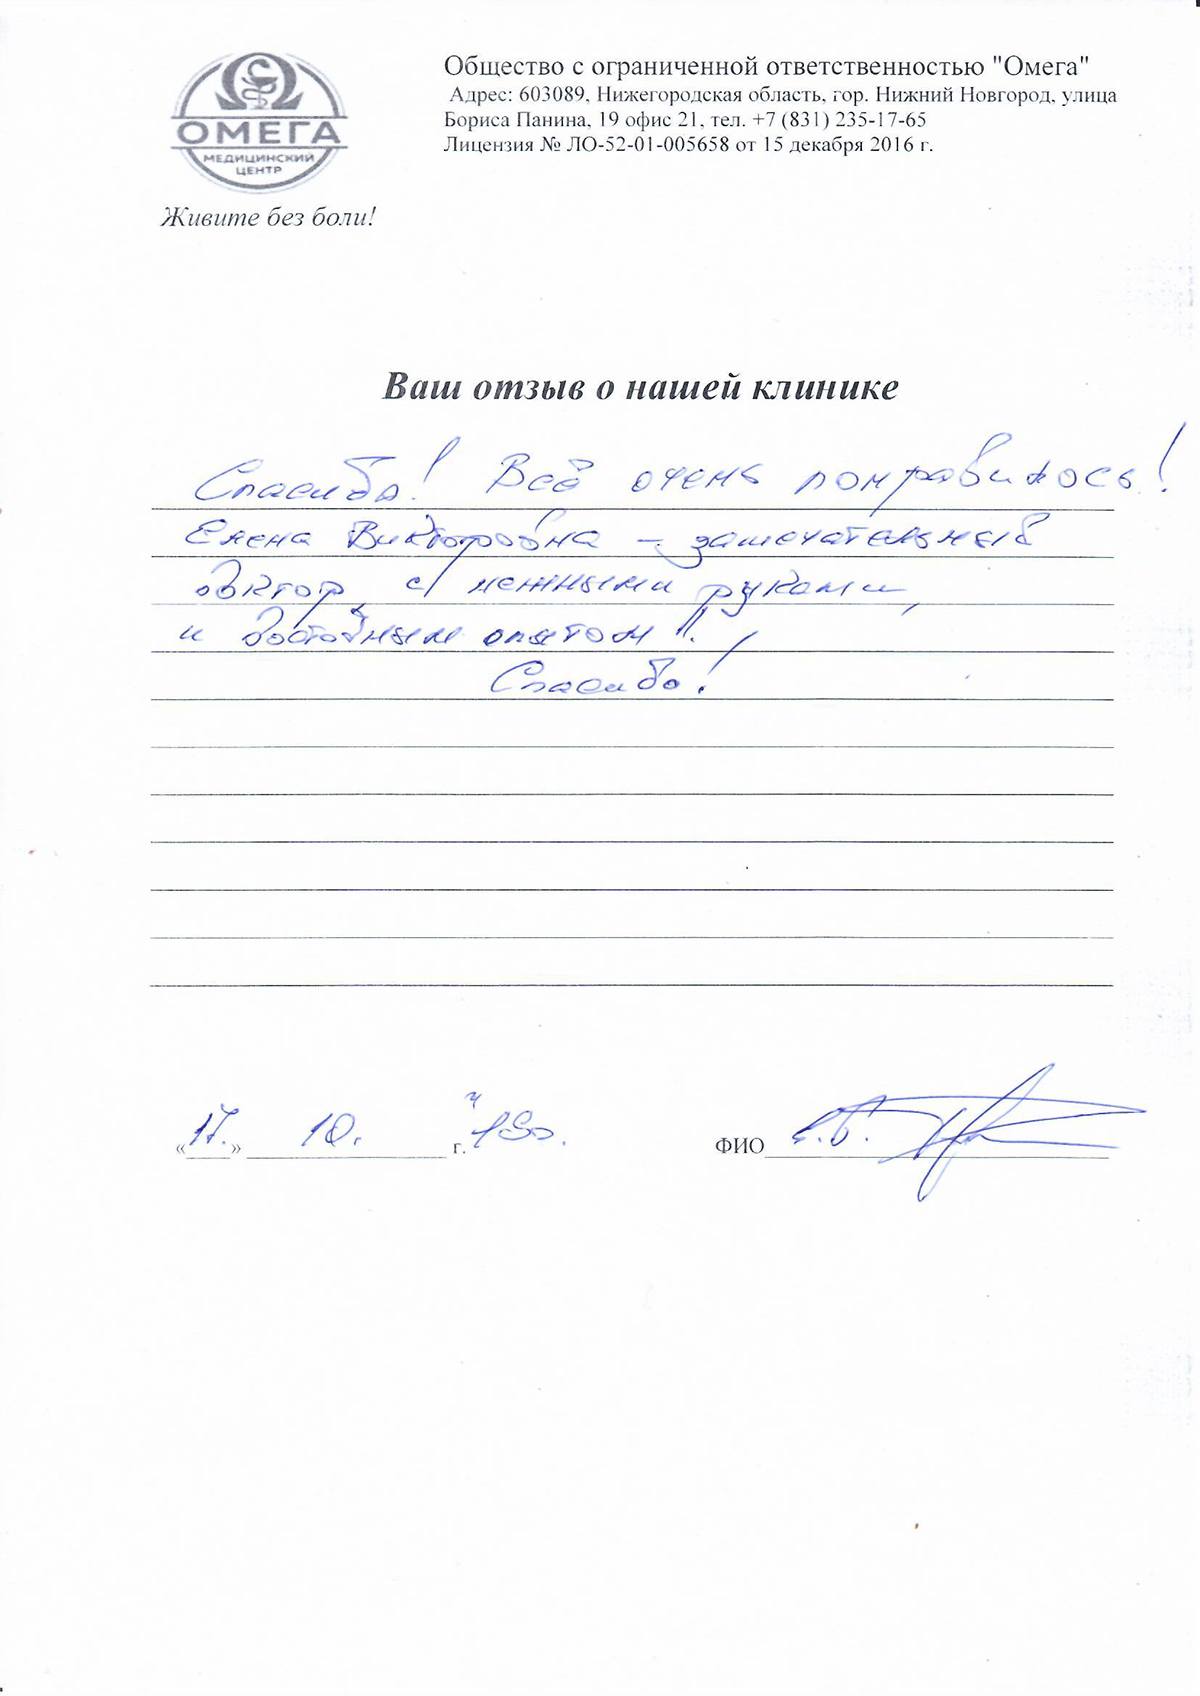 ОМЕГА
МЕДИЦИНСКИЙ
ЦЕНТР
Живите без боли!
Общество с ограниченной ответственностью "Омега"
Адрес: 603089, Нижегородская область, гор. Нижний Новгород, улица
Бориса Панина, 19 офис 21, тел. +7 (831) 235-17-65
Лицензия № ЛО-52-01-005658 от 15 декабря 2016 г.
Ваш отзыв о нашей клинике
Спасибо! Всё очень понравилось!
Елена Викторовна – замечательный
доктор с нежными руками,
и достойным опытом!!
Спасибо!
«17.» 10. г.
ФИО